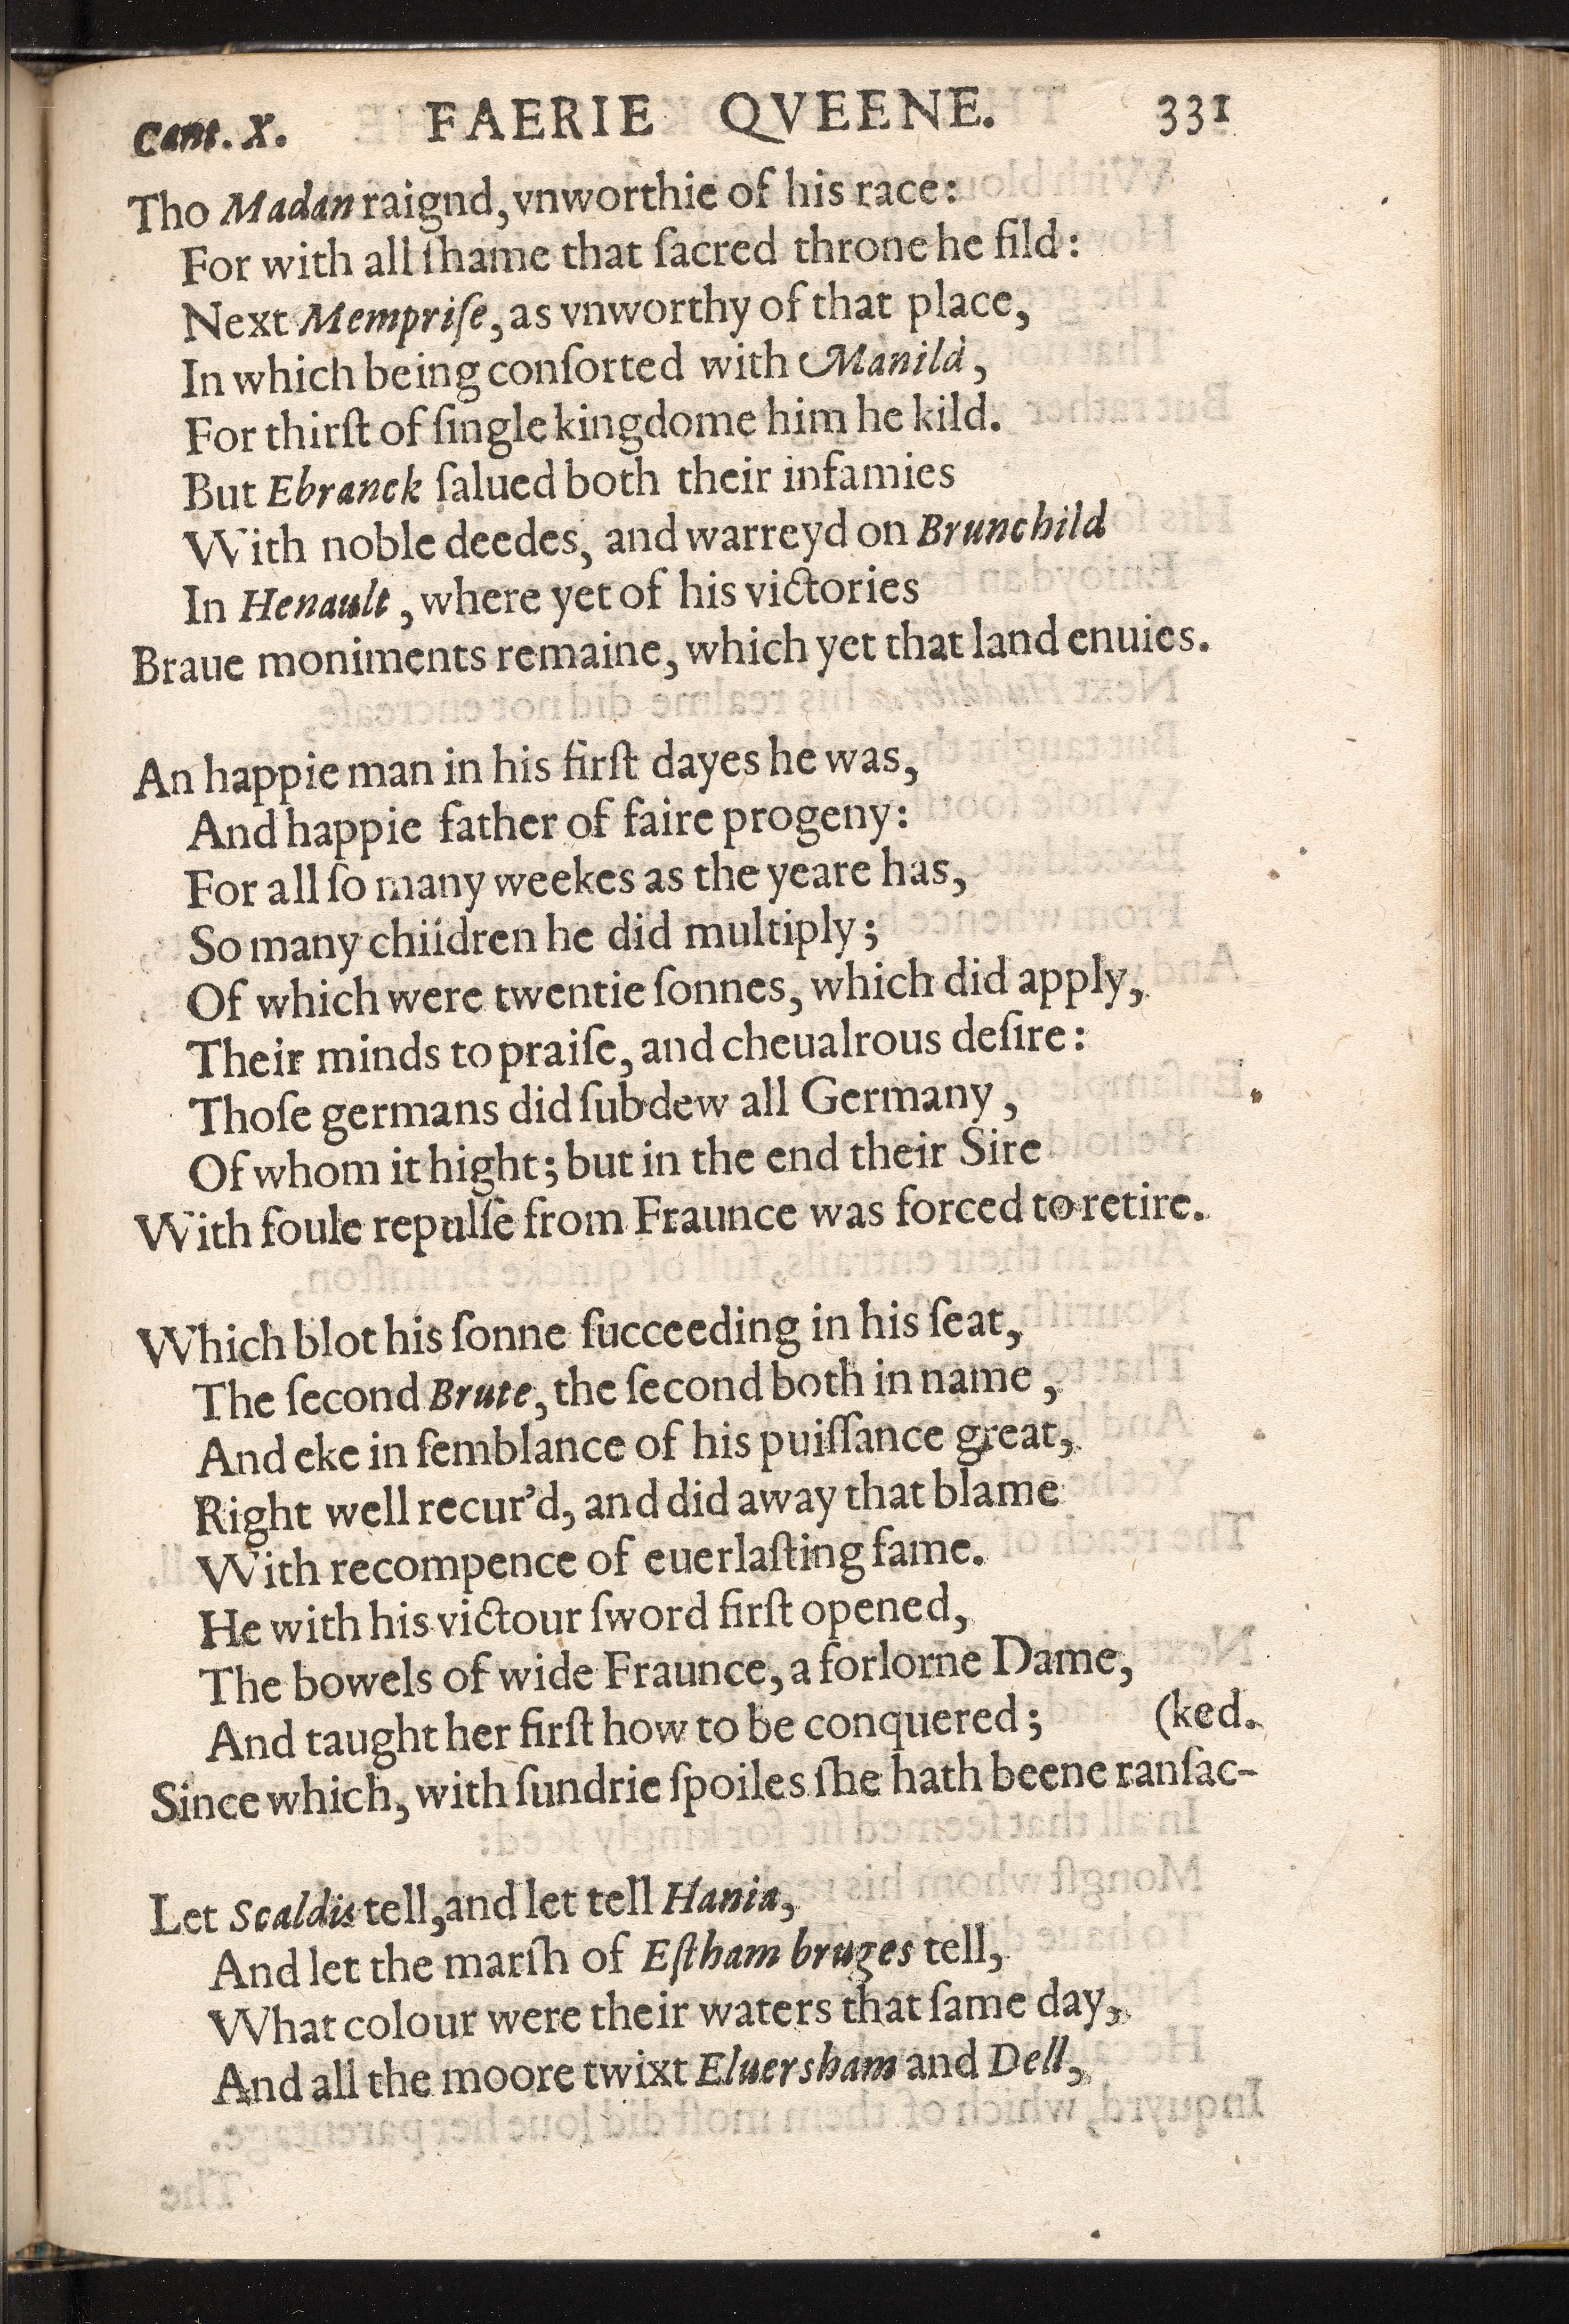 Cant. X. FAERIE QVEENE. 331
Tho Madan raignd, vnworthie of his race:
For with all ſhame that ſacred throne he fild:
Next Mempriſe, as vnworthy of that place,
In which being conſorted with Manild,
For thirſt of ſingle kingdome him he kild.
But Ebranck ſalued both their infamies
With noble deedes, and warreyd on Brunchild
In Henault, where yet of his victories
Braue moniments remaine, which yet that land enuies.
An happie man in his firſt dayes he was,
And happie father of faire progeny:
For all ſo many weekes as the yeare has,
So many chiidren he did multiply;
Of which were twentie ſonnes, which did apply,
Their minds to praiſe, and cheualrous deſire:
Thoſe germans did ſubdew all Germany,
Of whom it hight; but in the end their Sire
With foule repulſe from Fraunce was forced to retire.
Which blot his ſonne ſucceeding in his ſeat,
The ſecond Brute, the ſecond both in name,
And eke in ſemblance of his puiſſance great,
Right well recur'd, and did away that blame
With recompence of euerlaſting fame.
He with his victour ſword firſt opened,
The bowels of wide Fraunce, a forlorne Dame,
And taught her firſt how to be conquered; (ked.
Since which, with ſundrie ſpoiles ſhe hath beene ranſac-
Let Scaldis tell, and let tell Hania,
And let the marſh of Eſtham bruges tell,
What colour were their waters that ſame day,
And all the moore twixt Eluersham and Dell,